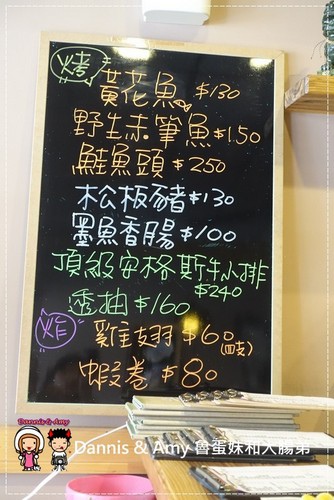 烤
黃花魚 $130
野生赤筆魚 $150
鮭魚頭 $250
松板豬 $130
墨魚香腸 $100
頂級安格斯牛小排
$240
透抽 $160
炸
雞翅 $60
(四支)
蝦卷 $80
Dannis & Amy
Dannis & Amy 魯蛋妹和大腸弟